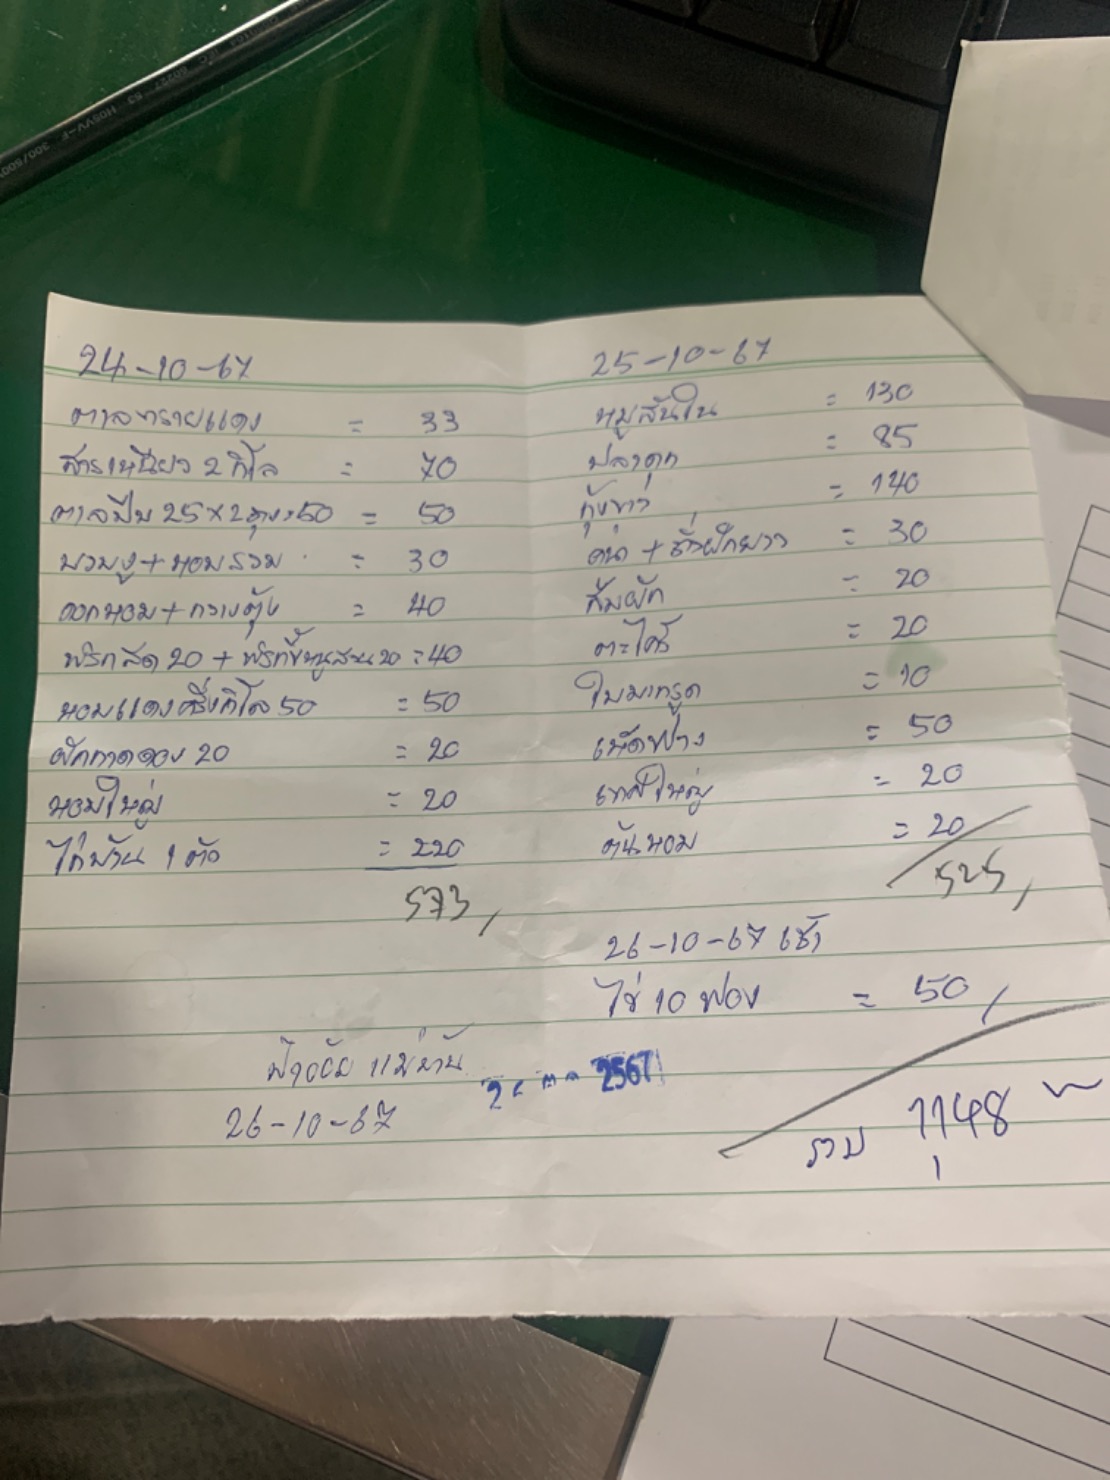 H05VV-F 300/500V
24-10-67
ตาลทรายแดง = 33
สารเหนียว 2 กิโล = 70
ตาลปีบ 25 x 2 ถุง = 50 = 50
บวบงู + หอมรวม = 30
ดอกหอม + กวางตุ้ง = 40
พริกสด 20 + พริกขี้หนูสวน 20 = 40
หอมแดงครึ่งกิโล 50 = 50
ผักกาดดอง 20 = 20
หอมใหญ่ = 20
ไก่บ้าน 1 ตัว = 220
573
25-10-67
หมูสันใน = 130
ปลาดุก = 85
กุ้งขาว = 140
คน้า + ถั่วฝักยาว = 30
ส้มผัก = 20
ตะไคร้ = 20
ใบมะกรูด = 10
เห็ดฟาง = 50
เทศใหญ่ = 20
ต้นหอม = 20
525
26-10-67 เช้า
ไข่ 10 ฟอง = 50
แม่บ้าน
26-10-67
2567
รวม 1148